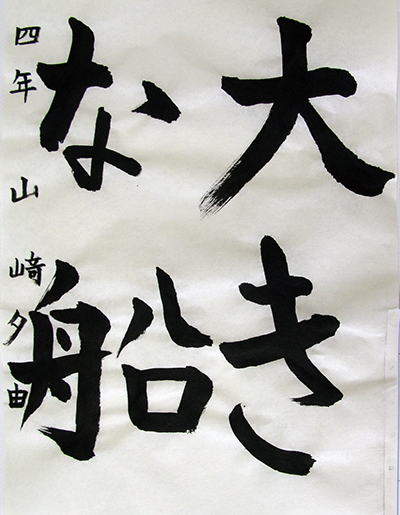 大き
な船
四年 山﨑夕由